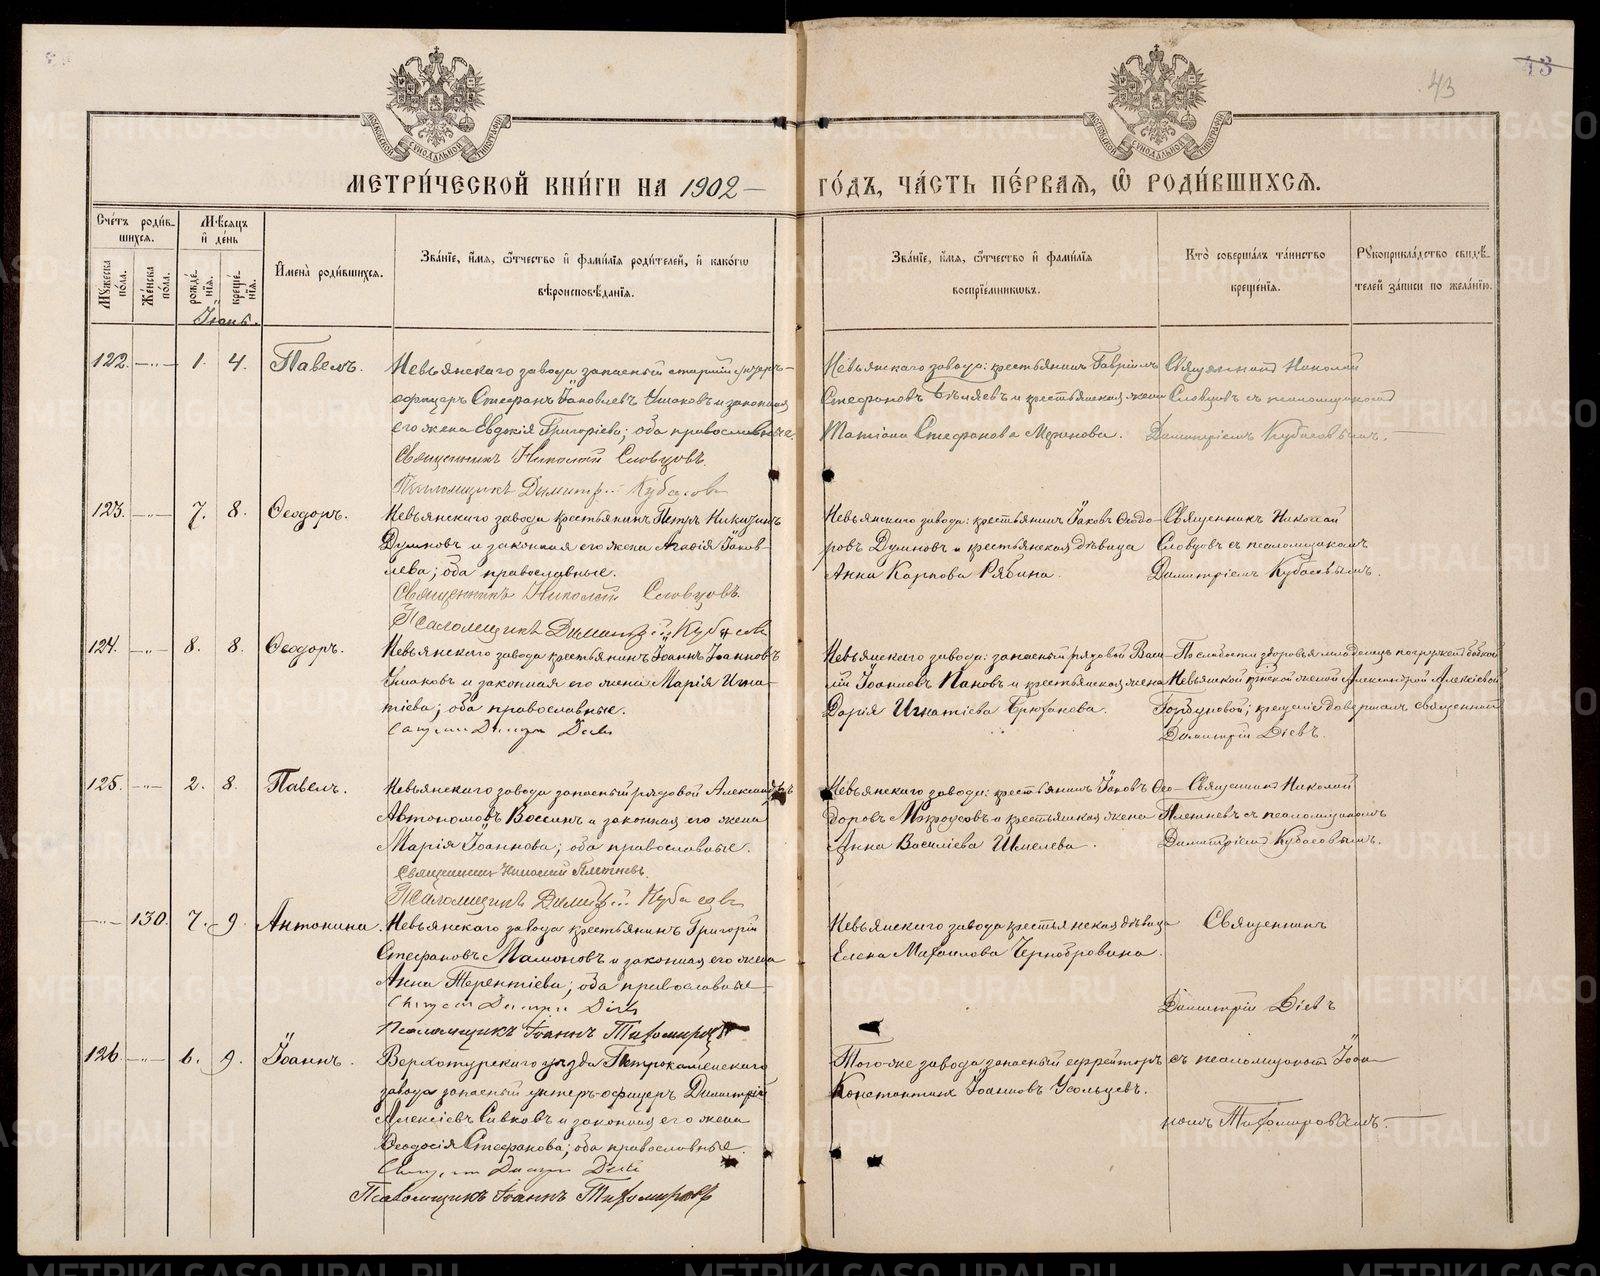 43
43
МЕТРИ́ЧЕСКОЙ КНИ́ГИ НА 1902 ГО́ДЪ, ЧА́СТЬ ПЕ́РВАЯ, Ѿ РОДИ́ВШИХСЯ.
МОСКОВСКОЙ СѴНОДАЛЬНОЙ ТИПОГРАФІИ
МОСКОВСКОЙ СѴНОДАЛЬНОЙ ТИПОГРАФІИ
Сче́тъ роди́вшихся.
Му́жеска по́ла.
Же́нска по́ла.
Мѣ́сяцъ и҆ де́нь
рожде́нїя.
креще́нїя.
И҆мена̀ роди́вшихся.
Зва́нїе, и҆́мя, ѻ҆́тчество и҆ фами́лїя роди́телей, и҆ како́гѡ вѣроисповѣ́данїя.
Зва́нїе, и҆́мя, ѻ҆́тчество и҆ фами́лїя воспрїе́мниковъ.
Кто̀ соверша́лъ та́инство креще́нїя.
Рꙋкоприкла́дство свидѣ́телей за́писи по жела́нїю.
Іюнь.
122. 1. 4. Павелъ.
Невьянскаго завода запасный старшій унтеръ-
офицеръ Стефанъ Іаковлевъ Ушаковъ и законная
его жена Евдокія Григоріева; оба православные.
Священникъ Николай Словцовъ.
Псаломщикъ Димитрій Кубасовъ
Невьянскаго завода: крестьянинъ Гавріилъ
Стефановъ Бѣляевъ и крестьянская жена
Татіана Стефанова
Священникъ Николай
Словцовъ съ псаломщикомъ
Димитріемъ Кубасовымъ.
123. 7. 8. Ѳеодоръ.
Невьянскаго завода крестьянинъ Петръ Никитинъ
Думновъ и законная его жена Агафія Іаков-
лева; оба православные.
Священникъ Николай Словцовъ.
Псаломщикъ Димитрій Кубасовъ
Невьянскаго завода: крестьянинъ Іаковъ Ѳеодо-
ровъ Думновъ и крестьянская дѣвица
Анна Карпова Рябина.
Священникъ Николай
Словцовъ съ псаломщикомъ
Димитріемъ Кубасовымъ.
124. 8. 8. Ѳеодоръ.
Невьянскаго завода крестьянинъ Іоаннъ Іоанновъ
Ушаковъ и законная его жена Марія Игна-
тіева; оба православные.
Димитр Діевъ
Невьянскаго завода: запасный рядовой Васи-
лій Іоанновъ Пановъ и крестьянская жена
Дарія Игнатіева
По слабости здоровья младенецъ погруженъ бабкой
Невьянской женой Александрой Алексіевой
Горбуновой; крещеніе довершалъ священникъ
Димитрій Діевъ.
125. 2. 8. Павелъ.
Невьянскаго завода запасный рядовой Александръ
Автономовъ и законная его жена
Марія Іоаннова; оба православные.
Священникъ Николай Плетневъ.
Псаломщикъ Димитрій Кубасовъ
Невьянскаго завода: крестьянинъ Іаковъ Ѳео-
доровъ Мокроусовъ и крестьянская жена
Анна Василіева Шмелева.
Священникъ Николай
Плетневъ съ псаломщикомъ
Димитріемъ Кубасовымъ.
130. 7. 9. Антонина.
Невьянскаго завода крестьянинъ Григорій
Стефановъ Мамоновъ и законная его жена
Анна Терентіева; оба православные.
Димитрій Діевъ
Псаломщикъ Іоаннъ Тихомировъ
Невьянскаго завода крестьянская дѣвица
Елена Михаилова Чернобровина.
Священникъ
Димитрій Діевъ
126. 6. 9. Іоаннъ.
Верхотурскаго уѣзда Петрокаменскаго
завода запасный унтеръ-офицеръ Димитрій
Алексіевъ Сивковъ и законная его жена
Ѳеодосія Стефанова; оба православные.
Димитрій Діевъ
Псаломщикъ Іоаннъ Тихомировъ
Того-же завода запасный ефрейторъ
Константинъ Іоанновъ Усольцевъ.
съ псаломщикомъ Іоан-
номъ Тихомировымъ.
METRIKI.GASO-URAL.RU